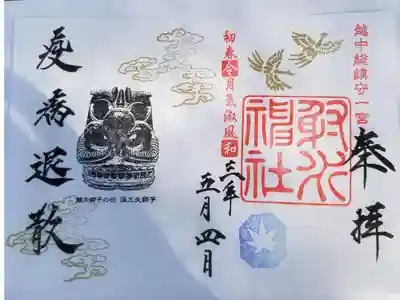 越中総鎮守一宮
奉拝
射水神社
初春令月氣淑風和
三年
五月四日
越中獅子の祖 源太夫獅子
疫病退散